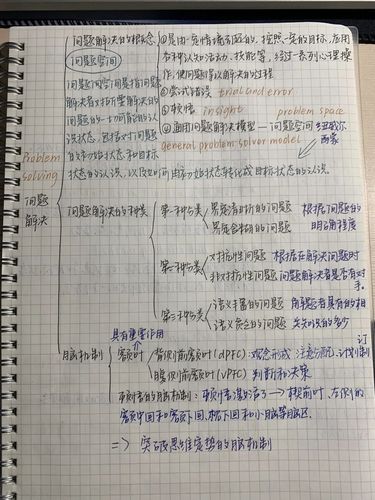 问题解决的概念
①是由一定情境引起的，按照一定的目标，应用
各种认知活动、技能等，经过一系列心理操
作，使问题得以解决的过程
问题空间
②尝试错误 trial and error
③顿悟 insight problem space
④通用问题解决模型—问题空间 纽威尔 西蒙
general problem solver model
问题空间是指问题
解决者对所要解决的
问题的一切可能的认
识状态，包括对问题
的初始状态和目标
状态的认识，以及如何由初始状态转化成目标状态的认识。
Problem solving
问题解决
问题解决的种类
第一种分类
界定清晰的问题
界定含糊的问题
根据问题的
明确程度
第二种分类
对抗性问题
非对抗性问题
根据在解决问题时
问题解决者是否有对
手。
第三种分类
语义丰富的问题
语义贫乏的问题
解题者具有的相
关知识的多少
脑机制
具有重要作用
额叶
背侧前额叶(dPFC)：观念形成 注意分配 计划 订计划
腹侧前额叶(vPFC) 判断和决策
顿悟的脑机制：顿悟激活了→楔前叶、左侧的
额中回和额下回、枕下回和小脑等脑区.
=> 突破思维定势的脑机制